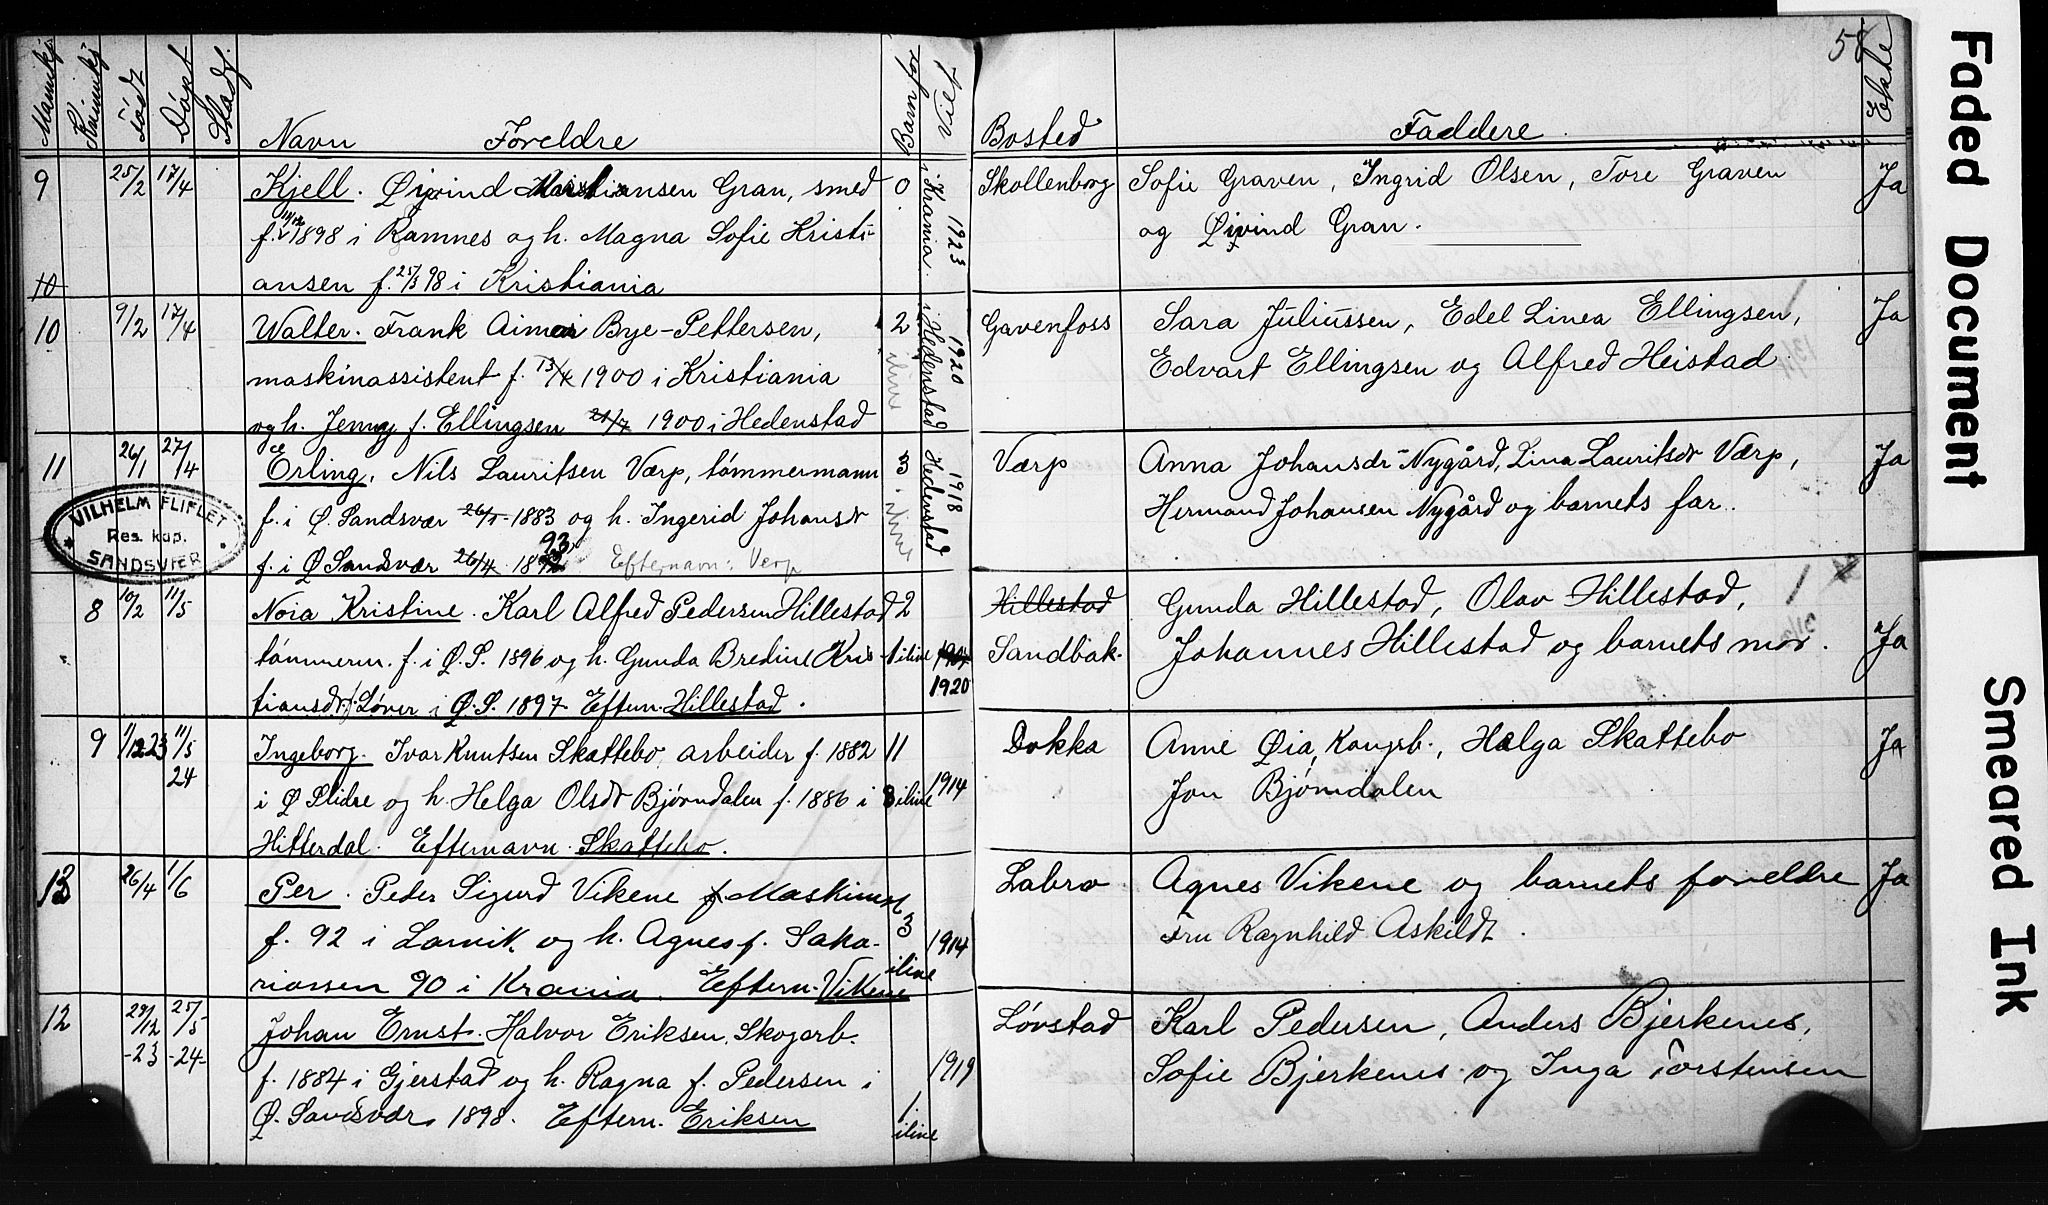 Mannkj
Kvinnekj
Født
Døpt
Stadf.
Navn Foreldre
Barnets
Bosted
Faddere
58
Ekte
9 25/2 17/4 Kjell. Øivind Kristiansen Gran, smed 0 i Krania 1923 Skollenborg Sofie Graven, Ingrid Olsen, Tore Graven Ja
f. 1898 i Ramnes og h. Magna Sofie Kristi- og Øivind Gran.
10 ansen f. 25/3 98 i Kristiania
10 9/2 17/4 Walter. Frank Aimar Bye-Pettersen, 2 i Hedenstad 1920 Gavenfoss Sara Juliussen, Edel Linea Ellingsen, Ja
maskinassistent f. 13/4 1900 i Kristiania ilive Edvart Ellingsen og Alfred Heistad
og h. Jenny f. Ellingsen 21/7 1900 i Hedenstad
11 26/1 27/4 Erling. Nils Lauritsen Værp, tømmermann 3 Hedenstad 1918 Værp Anna Johansdr Nygård, Lina Lauritsdr Værp, Ja
f. i Ø. Sandsvær 26/1 1883 og h. Ingerid Johansdr ilive Hermand Johansen Nygård og barnets far.
f. i Ø Sandsvær 26/4 1893 Efternavn: Verp
VILHELM FLIFLET
Res. kap.
SANDSVÆR
8 10/2 11/5 Nora Kristine. Karl Alfred Pedersen Hillestad 2 Hillestad Gunda Hillestad, Olav Hillestad,
tømmerm. f. i Ø. S. 1896 og h. Gunda Bredine Kris- 1 ilive 1920 Sandbak. Johannes Hillestad og barnets mor. Ja
tiansdr. f. Løver i Ø. S. 1897 Eftern. Hillestad.
9 1/12 23 11/5 24 Ingeborg. Ivar Knutsen Skattebo, arbeider f. 1882 11 Dokka Anne Øia, Kongsb., Helga Skattebo Ja
i Ø Slidre og h. Helga Olsdr Bjørndalen f. 1886 i 8 ilive 1914 Jon Bjørndalen
Hitterdal. Efternavn Skattebo.
13 26/4 1/6 Per. Peder Sigurd Vikene Maskinist 3 Labro Agnes Vikene og barnets foreldre Ja
f. 92 i Larvik og h. Agnes f. Saka- 1914 Fru Ragnhild Askildt.
riassen 90 i Krania. Eftern. Vikene ilive
12 29/12 -23 25/5 -24- Johan Ernst. Halvor Eriksen, Skogarb. Løvstad Karl Pedersen, Anders Bjerkenes,
f. 1884 i Gjerstad og h. Ragna f. Pedersen i 1919 Sofie Bjerkenes og Inga Torstensen
Ø. Sandsvær 1898. Eftern. Eriksen 1 ilive
Faded Document
Smeared Ink